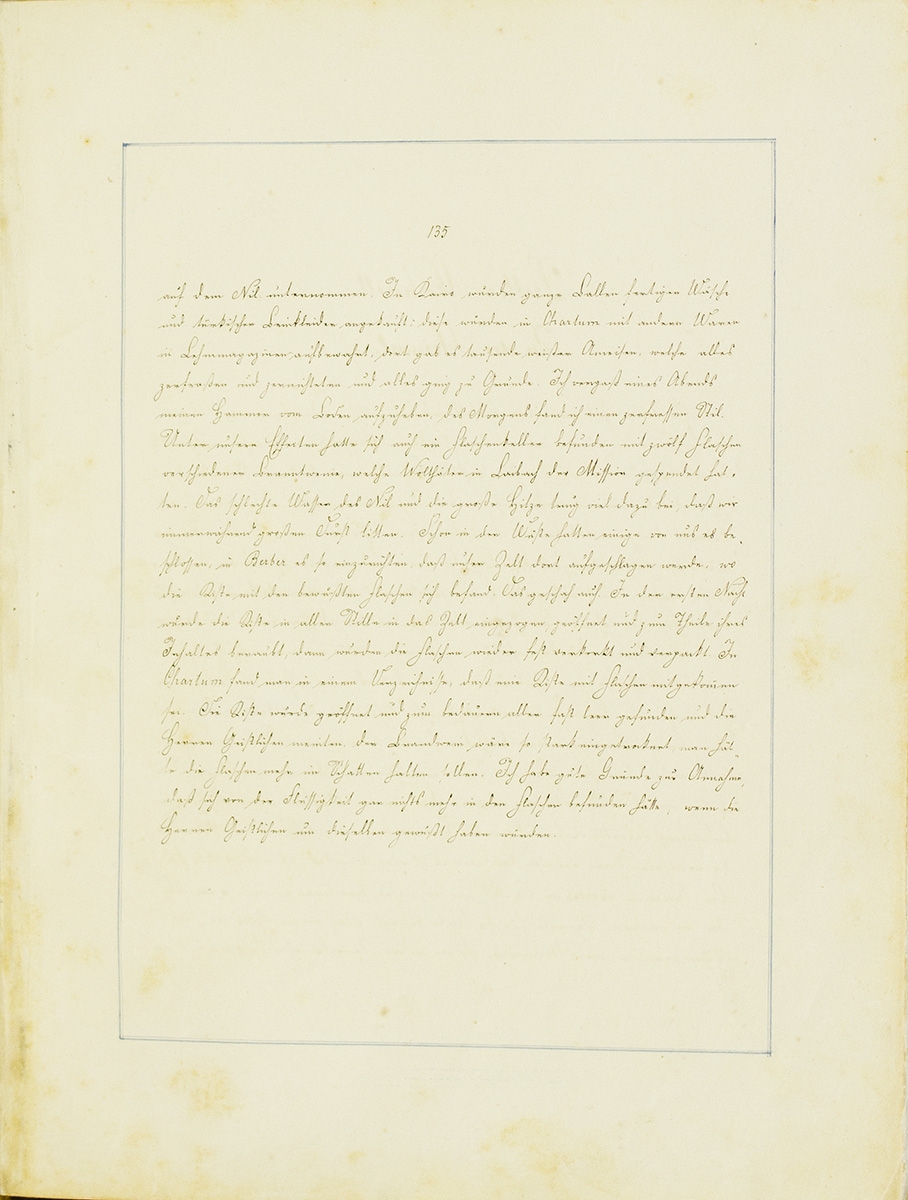 135
auf dem Nil unternommen. In Kairo wurden ganze Ballen fertiger Wäsche
und türkischer Beinkleider angekauft; diese wurden in Chartum mit andern Waren
in Lehmmagazinen aufbewahrt, dort gab es tausende weißer Ameisen, welche alles
zerfraßen und zernichteten, und alles ging zu Grunde. Ich vergaß eines Abends
meinen Hammer vom Boden aufzuheben, des Morgens fand ich einen zerfressenen Stil.
Unter unsern Effecten hatte sich auch ein Flaschenkeller befunden mit zwölf Flaschen
verschiedener Branntweine, welche Wolthäter in Laibach der Mission gespendet hat-
ten. Das schlechte Wasser des Nil und die große Hitze trug viel dazu bei, daß wir
immerwährend großen Durst litten. Schon in der Wüste hatten einige von uns es be-
schlossen, in Berber es so einzurichten, daß unser Zelt dort aufgeschlagen werde, wo
die Kiste mit den bewußten Flaschen sich befand. Das geschah auch. In der ersten Nacht
wurde die Kiste in aller Stille in das Zelt eingezogen geöffnet und zum Theile ihres
Inhaltes beraubt, dann wurden die Flaschen wieder fest verkorkt und verpackt. In
Chartum fand man in einem Verzeichnisse, daß eine Kiste mit Flaschen mitgekommen
sei. Die Kiste wurde geöffnet und zum bedauern aller fast leer gefunden, und die
Herren Geistlichen meinten, der Brantwein wäre so stark eingetrocknet, man hät-
te die Flaschen mehr im Schatten halten sollen. Ich habe gute Gründe zur Annahme,
daß sich von der Flüssigkeit gar nichts mehr in den Flaschen befunden hätte, wenn die
Herren Geistlichen um dieselben gewußt haben würden.